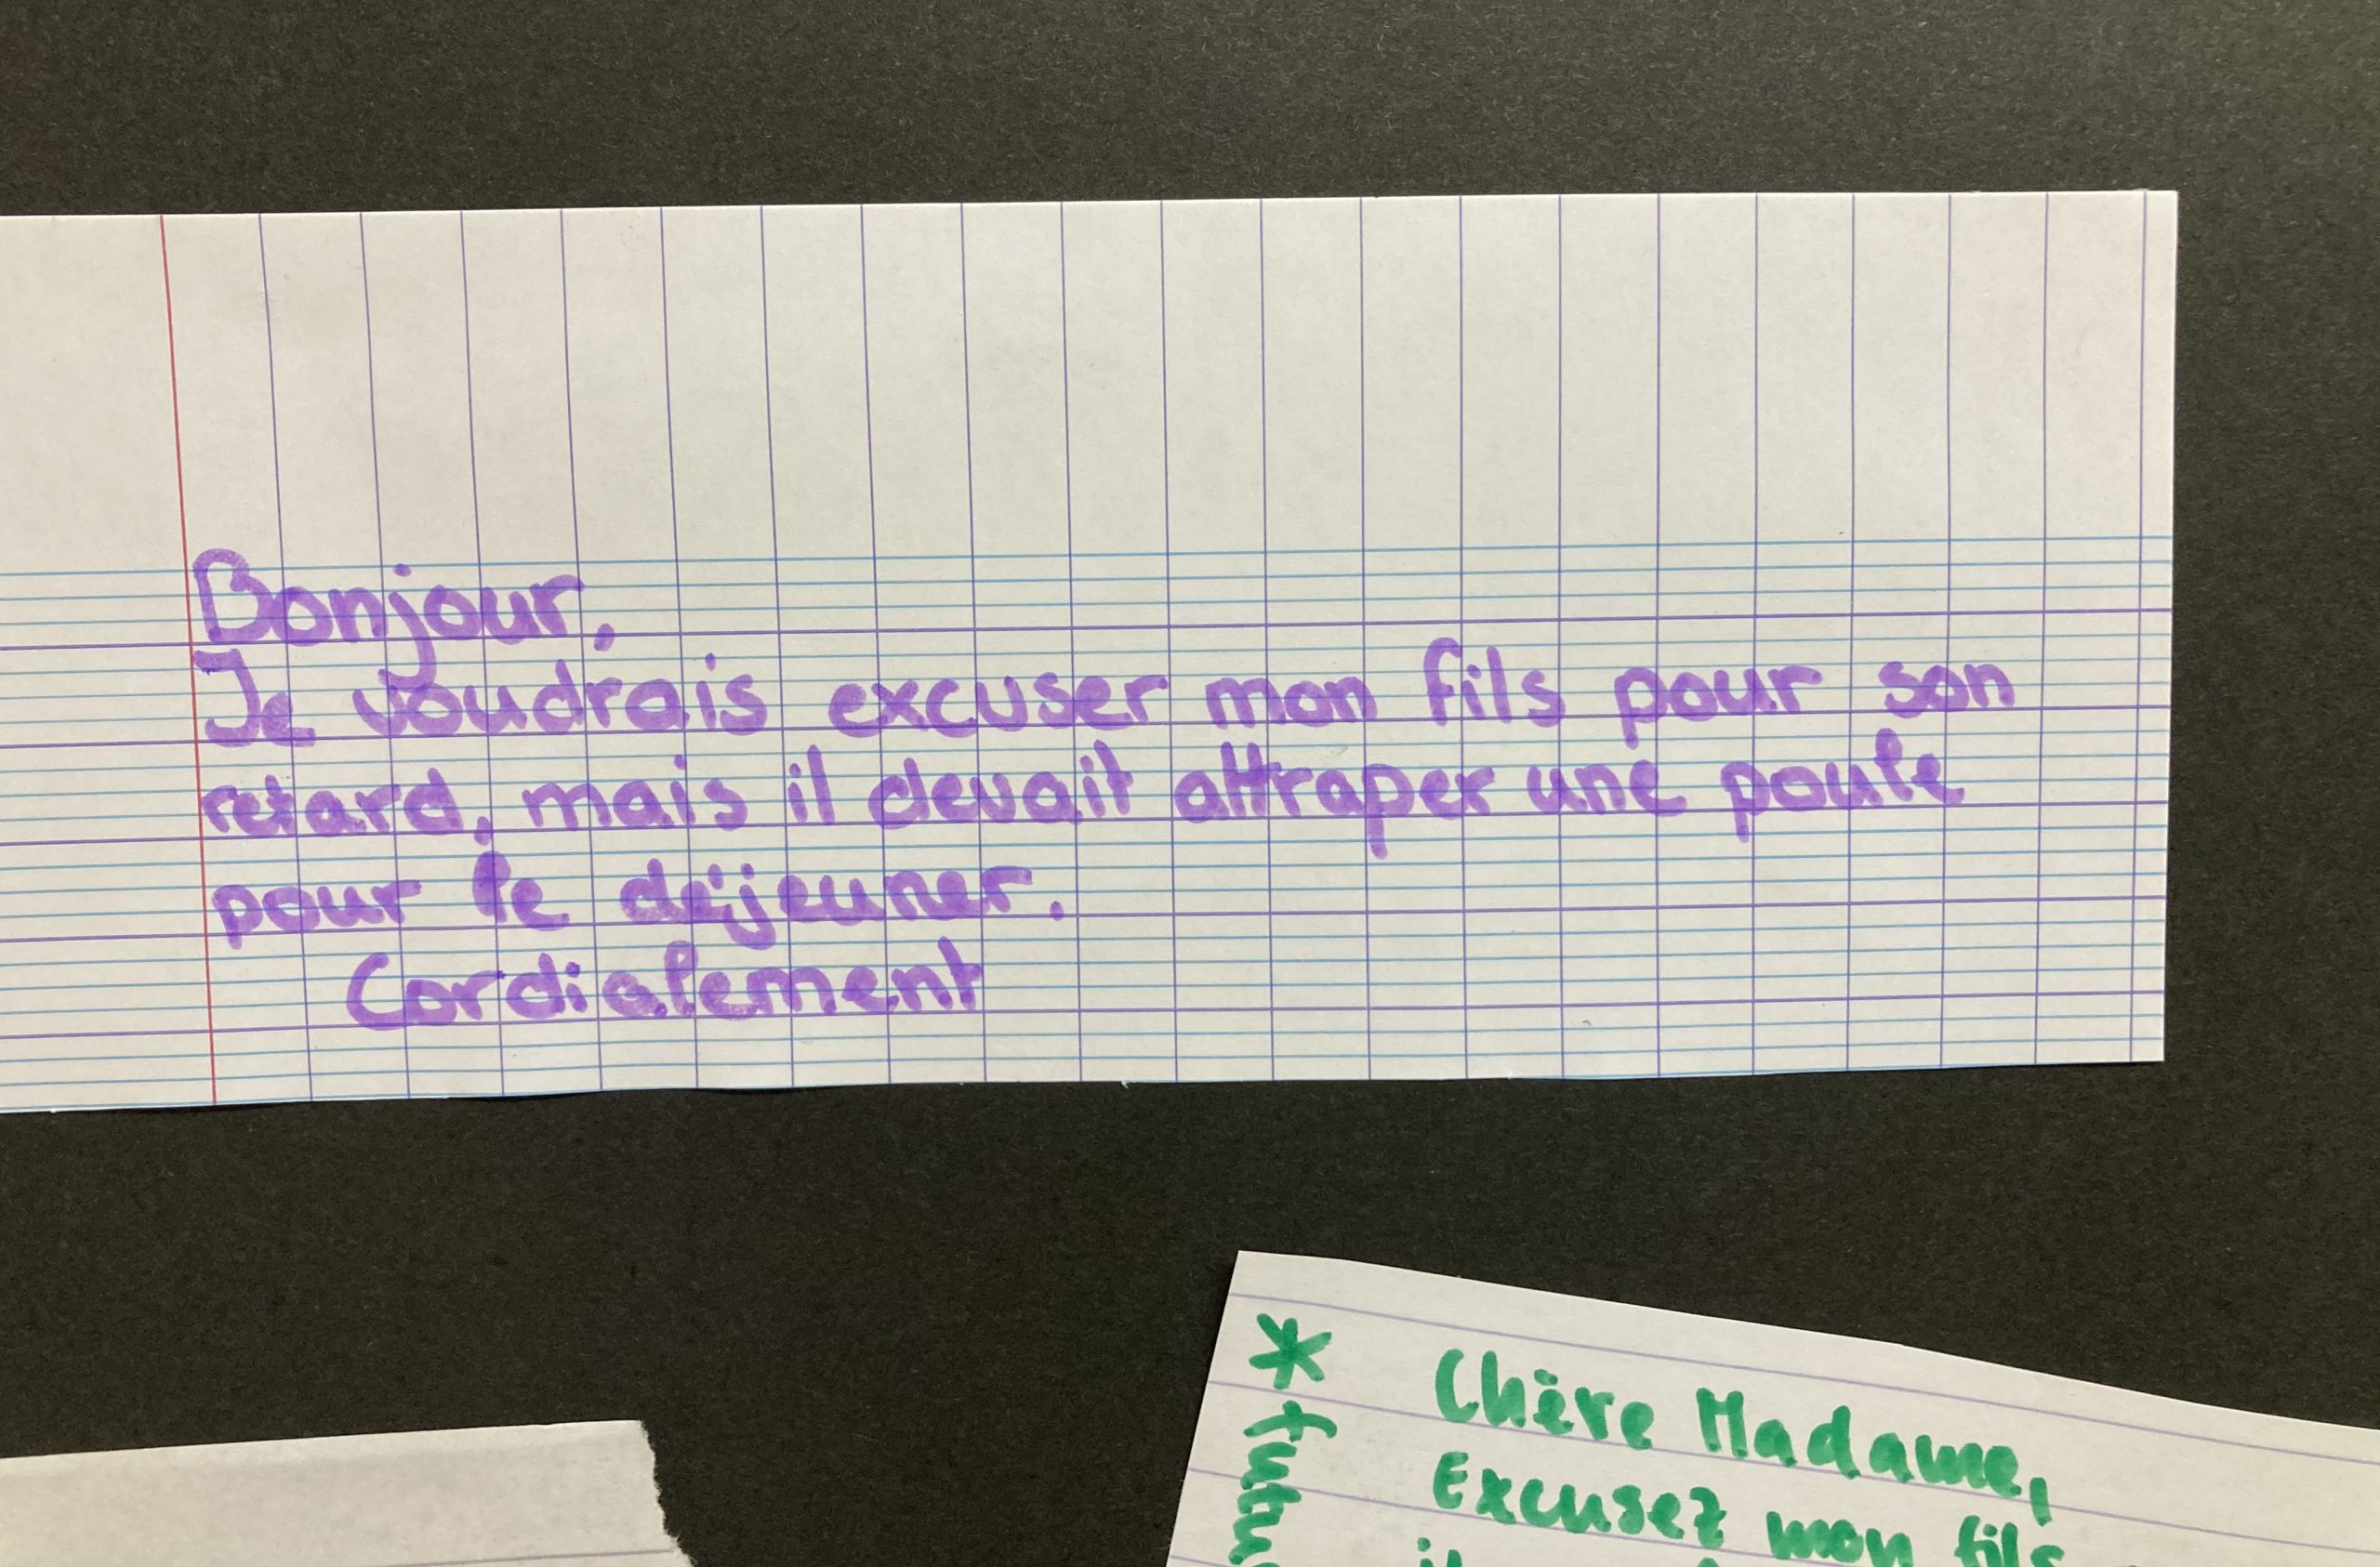 Bonjour,
Je voudrais excuser mon fils pour son
retard, mais il devait attraper une poule
pour le déjeuner.
Cordialement
* Chère Madame,
Excusez mon fils